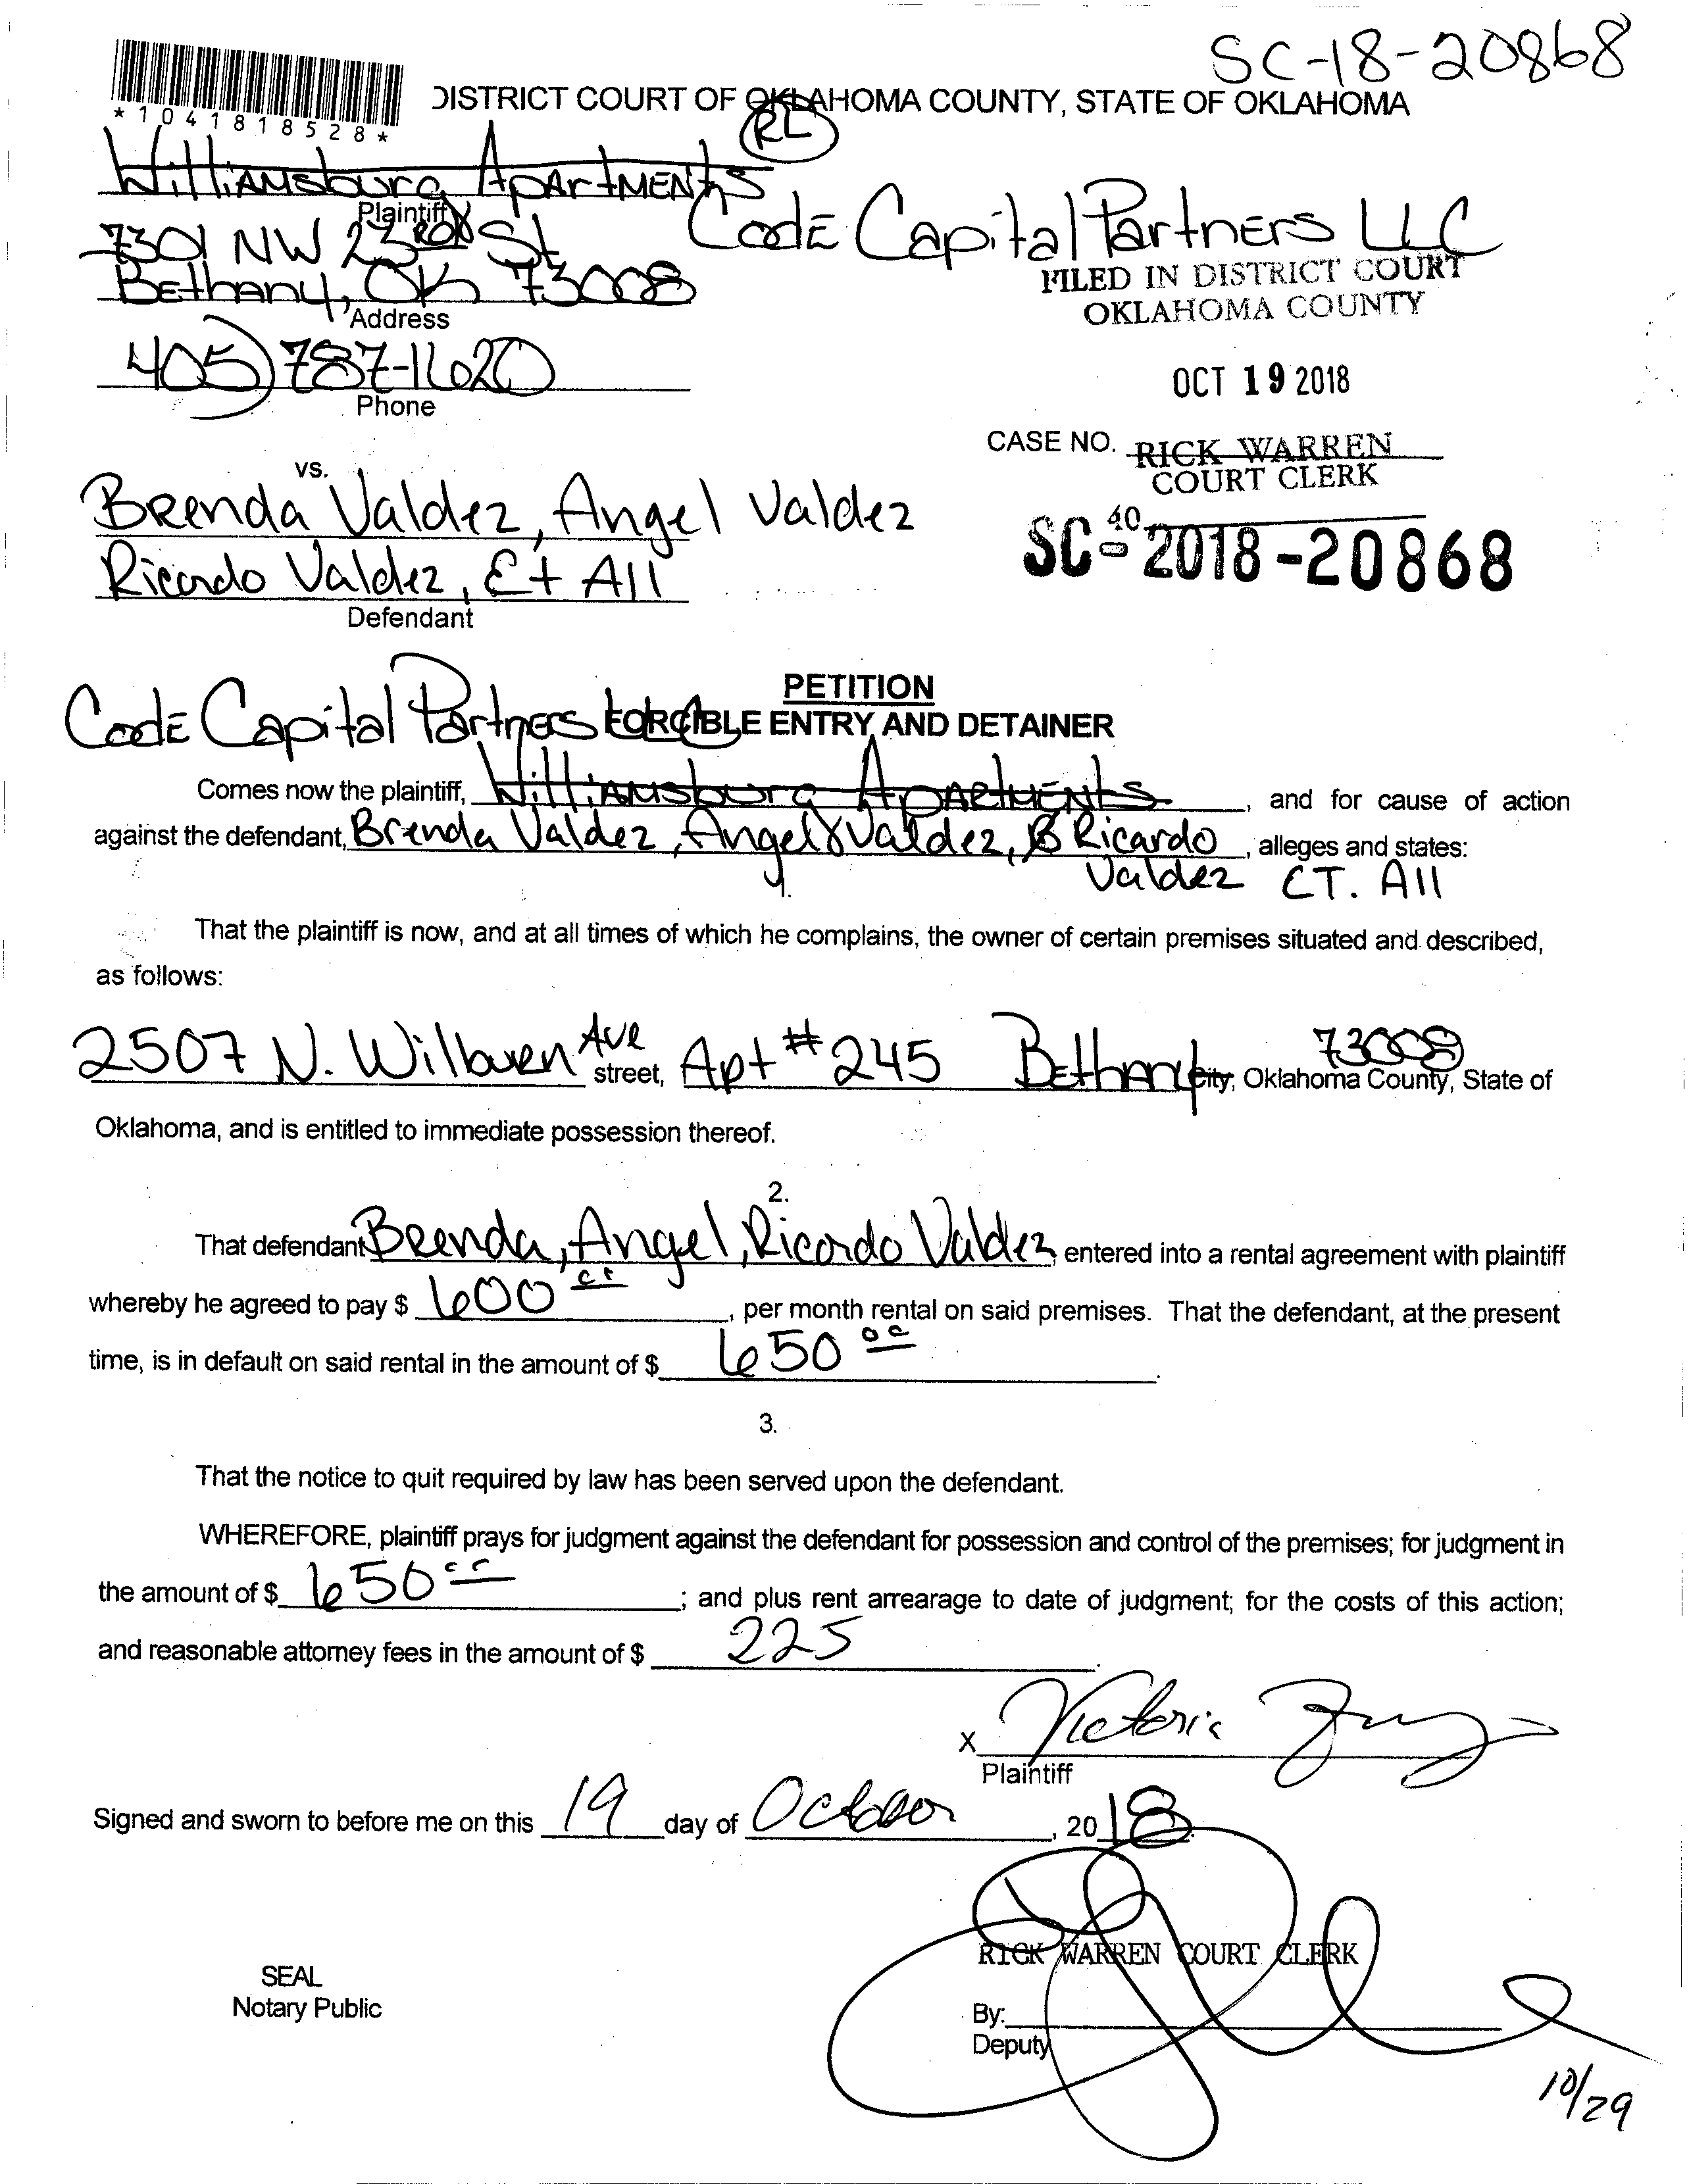 SC-18-20868
*1041818528*
DISTRICT COURT OF OKLAHOMA COUNTY, STATE OF OKLAHOMA
RL
Williamsburg Apartments
Plaintiff
Code Capital Partners LLC
7301 NW 23RD St
Bethany, OK 73008
Address
FILED IN DISTRICT COURT
OKLAHOMA COUNTY
405) 787-1620
Phone
OCT 19 2018
CASE NO. RICK WARREN
COURT CLERK
40
SC-2018-20868
vs.
Brenda Valdez, Angel Valdez
Ricardo Valdez, Et All
Defendant
PETITION
Code Capital Partners LLC FORCIBLE ENTRY AND DETAINER
Comes now the plaintiff, Williamsburg Apartments, and for cause of action
against the defendant, Brenda Valdez, Angel Valdez, Ricardo, alleges and states:
Valdez ET. All
1.
That the plaintiff is now, and at all times of which he complains, the owner of certain premises situated and described,
as follows:
2507 N. Wilburn Ave street, Apt #245 Bethany City, 73008 Oklahoma County, State of
Oklahoma, and is entitled to immediate possession thereof.
2.
That defendant Brenda, Angel, Ricardo Valdez, entered into a rental agreement with plaintiff
whereby he agreed to pay $ 600 00, per month rental on said premises. That the defendant, at the present
time, is in default on said rental in the amount of $ 650 00.
3.
That the notice to quit required by law has been served upon the defendant.
WHEREFORE, plaintiff prays for judgment against the defendant for possession and control of the premises; for judgment in
the amount of $ 650 00; and plus rent arrearage to date of judgment; for the costs of this action;
and reasonable attorney fees in the amount of $ 225.
X Victoria
Plaintiff
Signed and sworn to before me on this 19 day of October, 2018.
RICK WARREN COURT CLERK
SEAL
Notary Public
By:
Deputy
10/29